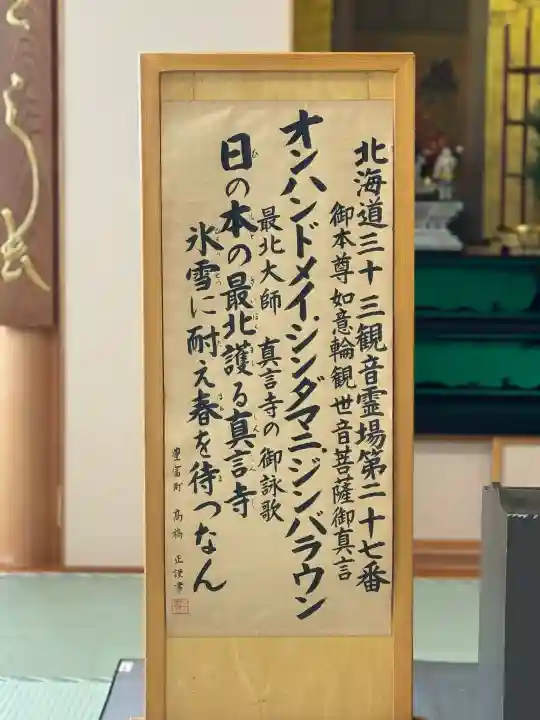 北海道三十三観音霊場第二十七番
御本尊 如意輪観世音菩薩御真言
オンハンドメイ.シンダマニ.ジンバラウン
最北大師 真言寺の御詠歌
日の本の最北護る真言寺
氷雪に耐え春を待つなん
豊富町 高橋 正